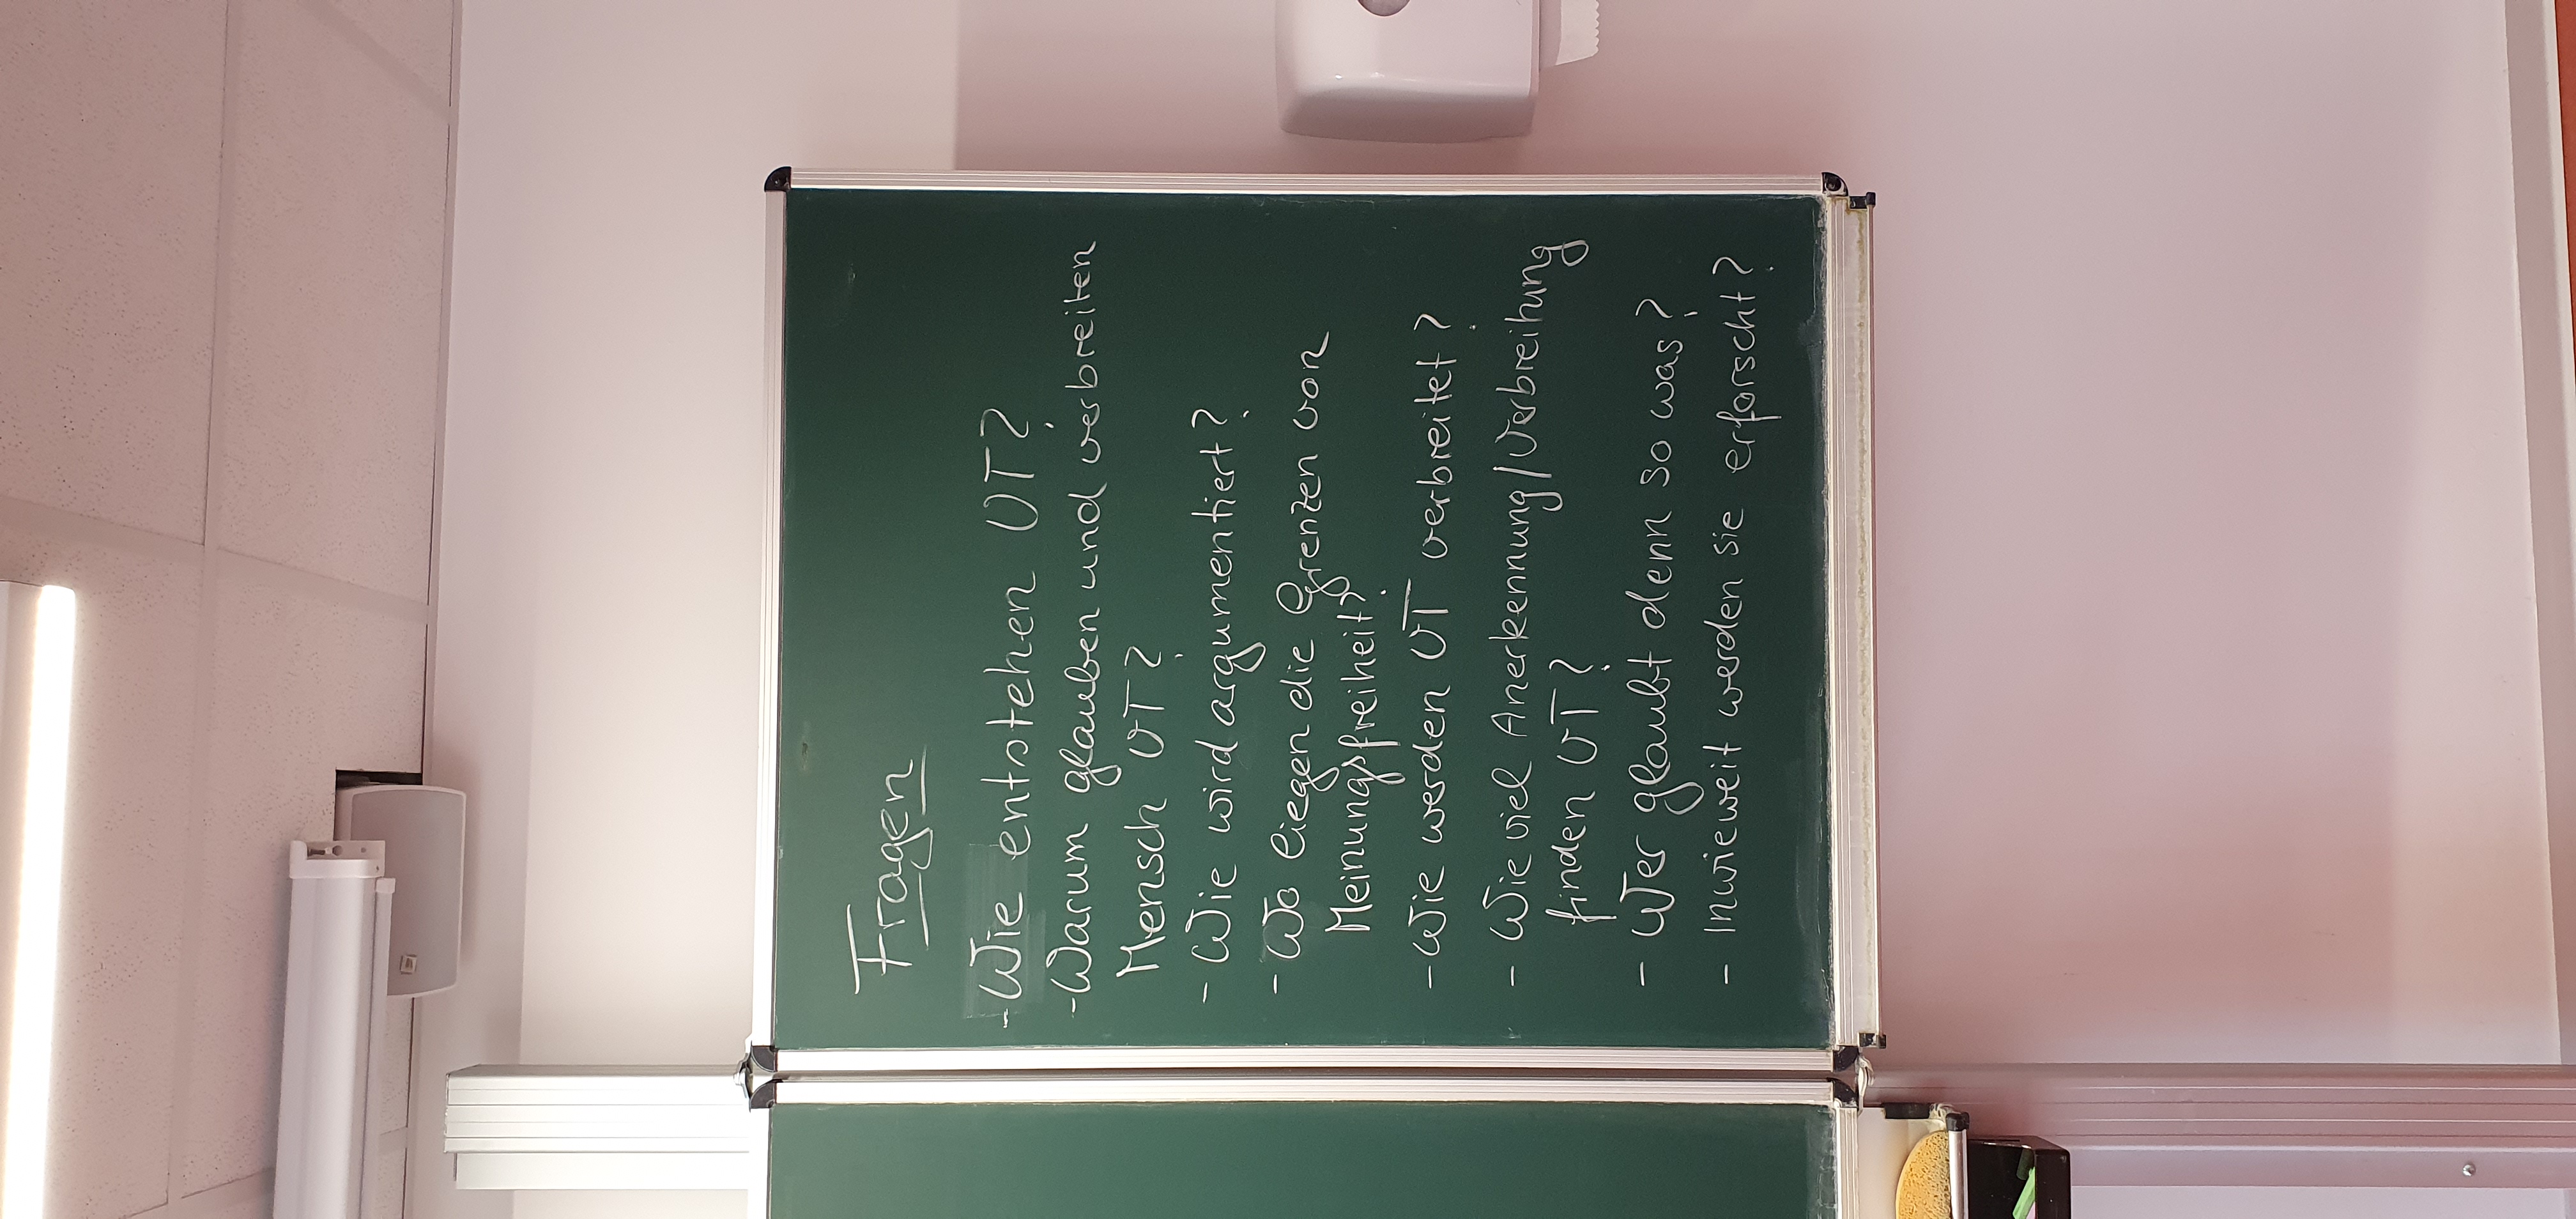 Fragen
- Wie entstehen VT?
- Warum glauben und verbreiten
Mensch VT?
- Wie wird argumentiert?
- Wo liegen die Grenzen von
Meinungsfreiheit?
- Wie werden VT verbreitet?
- Wie viel Anerkennung/Verbreitung
finden VT?
- Wer glaubt denn so was?
- Inwieweit werden sie erforscht?